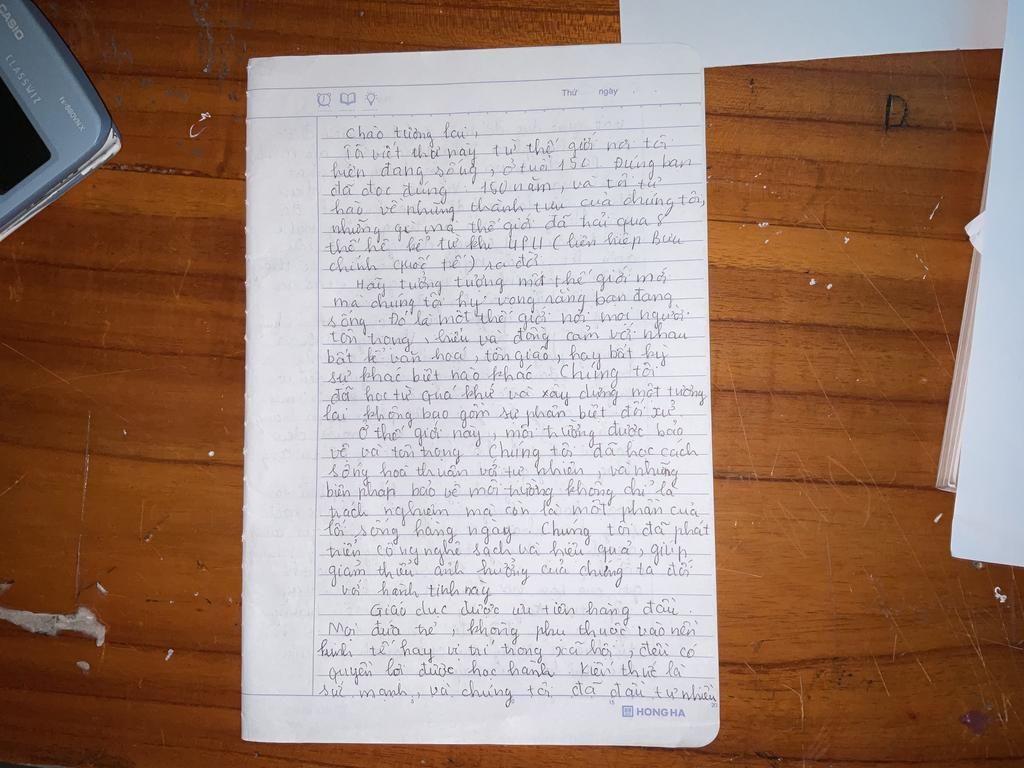 CASIO
CLASSWIZ
fx-580VNX
D
Thứ ngày
Chào tương lai,
Tôi viết thư này từ thế giới nơi tôi
hiện đang sống, ở tuổi 150. Đúng bạn
đã đọc đúng 150 năm, và tôi tự
hào về những thành tựu của chúng tôi,
những gì mà thế giới đã trải qua 8
thế hệ kể từ khi UPU (liên hiệp Bưu
chính quốc tế) ra đời
Hãy tưởng tượng một thế giới mới
mà chúng tôi hy vọng rằng bạn đang
sống. Đó là một thế giới nơi mọi người
tôn trọng, hiểu và đồng cảm với nhau
bất kể văn hoá, tôn giáo, hay bất kỳ
sự khác biệt nào khác. Chúng tôi
đã học từ quá khứ và xây dựng một tương
lai không bao gồm sự phân biệt đối xử
Ở thế giới này, môi trường được bảo
vệ và tôn trọng. Chúng tôi đã học cách
sống hoà thuận với tự nhiên, và những
biện pháp bảo vệ môi trường không chỉ là
trách nghiệm mà còn là một phần của
lối sống hàng ngày. Chúng tôi đã phát
triển công nghệ sạch và hiệu quả, giúp
giảm thiểu ảnh hưởng của chúng ta đối
với hành tinh này
Giáo dục được ưu tiên hàng đầu.
Mọi đứa trẻ, không phụ thuộc vào nền
kinh tế hay vị trí trong xã hội, đều có
quyền lợi được học hành. Kiến thức là
sức mạnh, và chúng tôi đã đầu tư nhiều
HONG HA